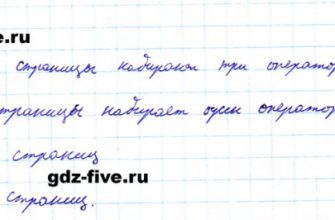 e.ru
страницы набирают три оператор
траницы набирает один оператор
страниц
gdz-five.ru
страниц.